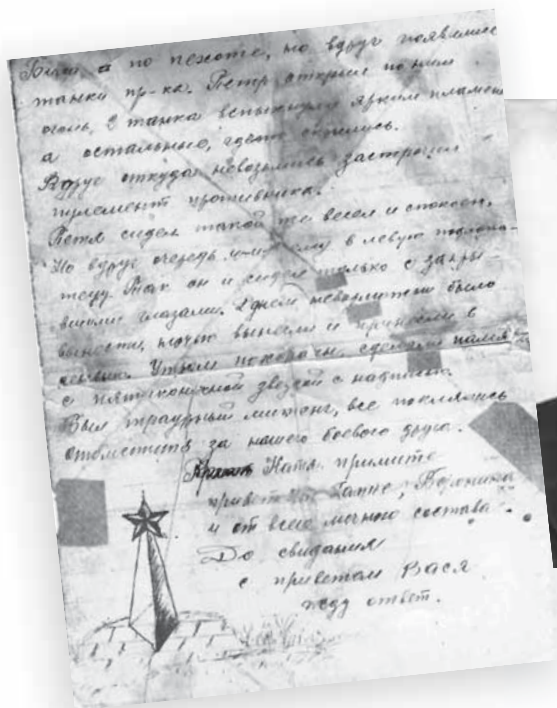 по пехоте, но вдруг появились
танки пр-ка. Петр открыл по ним
огонь, 2 танка вспыхнули ярким пламен
а остальные,
Вдруг откуда невозьмись застрочил
пулемент противника.
Петя сидел такой же весел и спокоен,
Но вдруг очередь ему в левую
Так он и сидел только с закры-
выми глазами. Днем было
вынести, ночью вынесли и принесли в
Утром похорони сделали памят
с пятиконечной звездой с надписью.
Был траурный митинг, все поклялись
отомстить за нашего боевого друга.
Ната примите
привет от
и от всего личного состава.
До свидания
с приветом Вася
жду ответ.